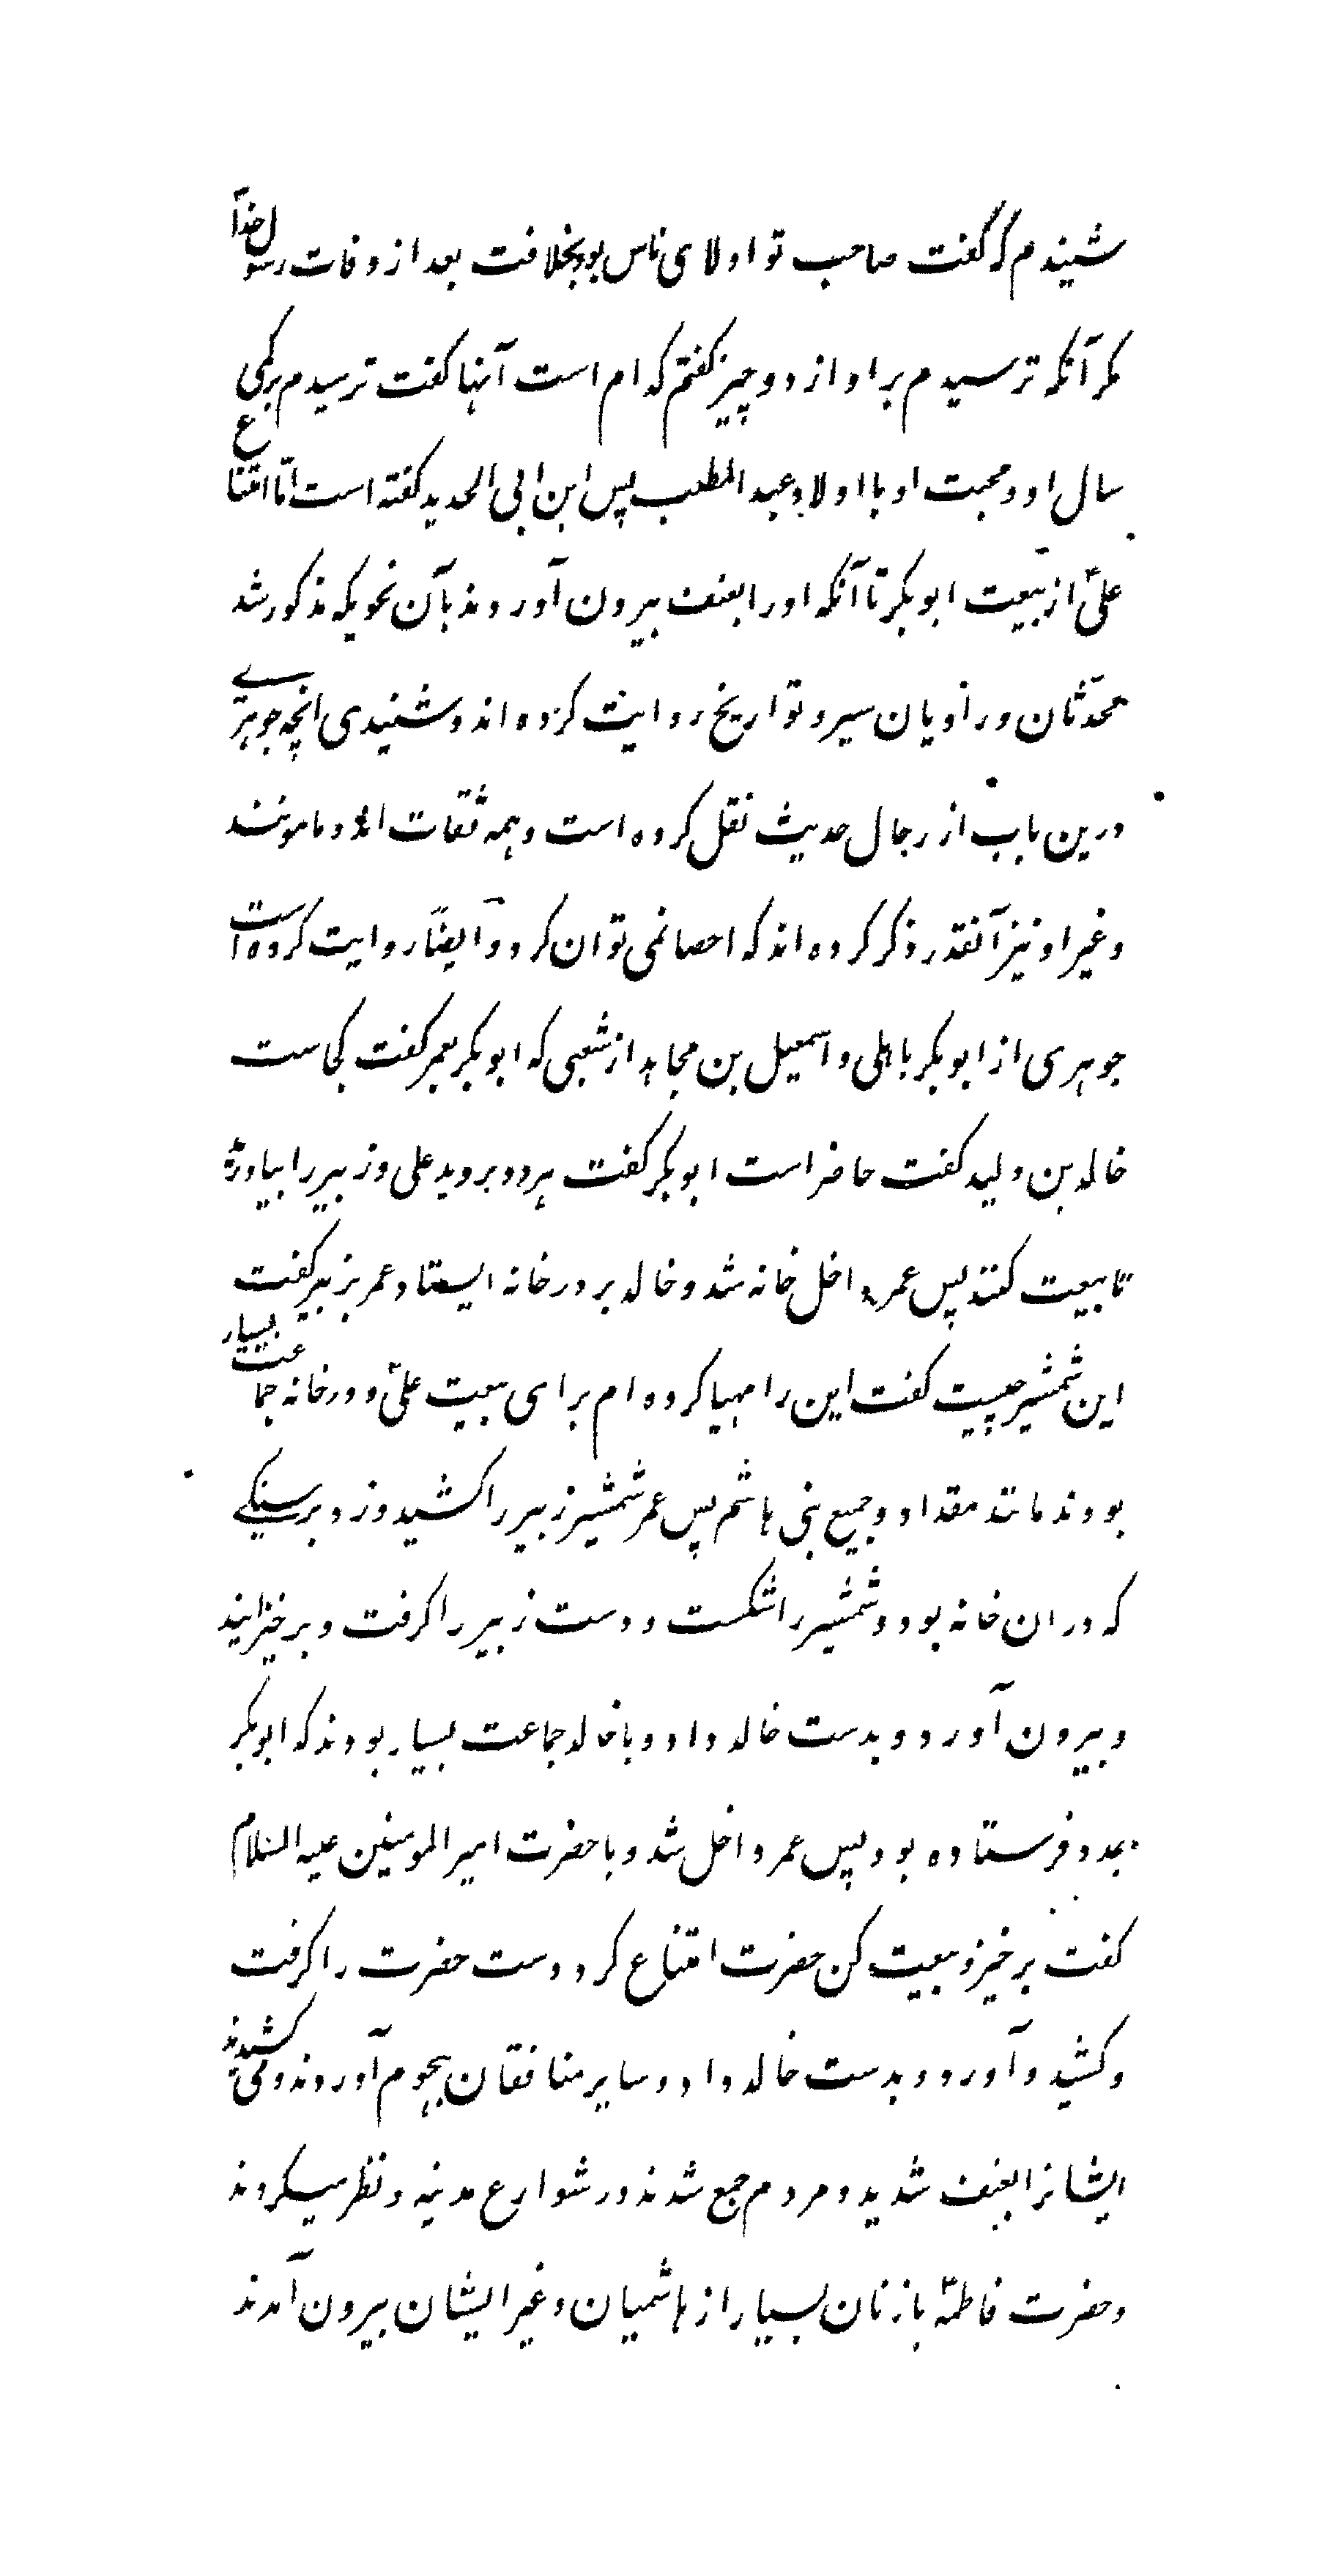 شنیدم که گفت صاحب تو اولای ناس بود بخلافت بعد از وفات رسول خدا
مکر آنکه ترسیدم بر او از دو چیز کفتم که ام است آنها کفت ترسیدم بر کمی
سال او و محبت او با اولاد عبد المطلب پس ابن ابی الحدید کفته است اما امتناع
علیؑ از بیعت ابوبکر تا آنکه او را بعنف بیرون آوردند بآن نحویکه مذکور شد
محدّثان و راویان سیر و تواریخ روایت کرده اند و شنیدی انچه جوهری
درین باب از رجال حدیث نقل کرده است و همه ثقات اند و مامونند
و غیر او نیز آنقدر ذکر کرده اند که احصا نمی توان کرد و ایضاً روایت کرده است
جوهری از ابوبکر باهلی و اسمعیل بن مجاهد از شعبی که ابوبکر بعمر کفت کجاست
خالد بن ولید کفت حاضر است ابوبکر کفت هر دو بروید علی و زبیر را بیاورید
تا بیعت کنند پس عمر داخل خانه شد و خالد بر در خانه ایستاد عمر بزبیر کفت
این شمشیر چیست کفت این را مهیا کرده ام برای بیعت علیؑ و در خانه جماعت بسیار
بودند مانند مقداد و جمیع بنی هاشم پس عمر شمشیر زبیر را کشید و زد بر سنکے
که در ان خانه بود و شمشیر را شکست و دست زبیر را کرفت و بر خیزانید
و بیرون آورد و بدست خالد داد و با خالد جماعت بسیار بودند که ابوبکر
بمدد فرستاده بود پس عمر داخل شد و با حضرت امیر المومنین علیه السلام
کفت بر خیز و بیعت کن حضرت امتناع کرد دست حضرت را کرفت
و کشید و آورد و بدست خالد داد و سایر منافقان هجوم آوردند و می کشیدند
ایشانرا بعنف شدید و مردم جمع شدند در شوارع مدینه و نظر میکردند
و حضرت فاطمهؑ با زنان بسیار از هاشمیان و غیر ایشان بیرون آمدند